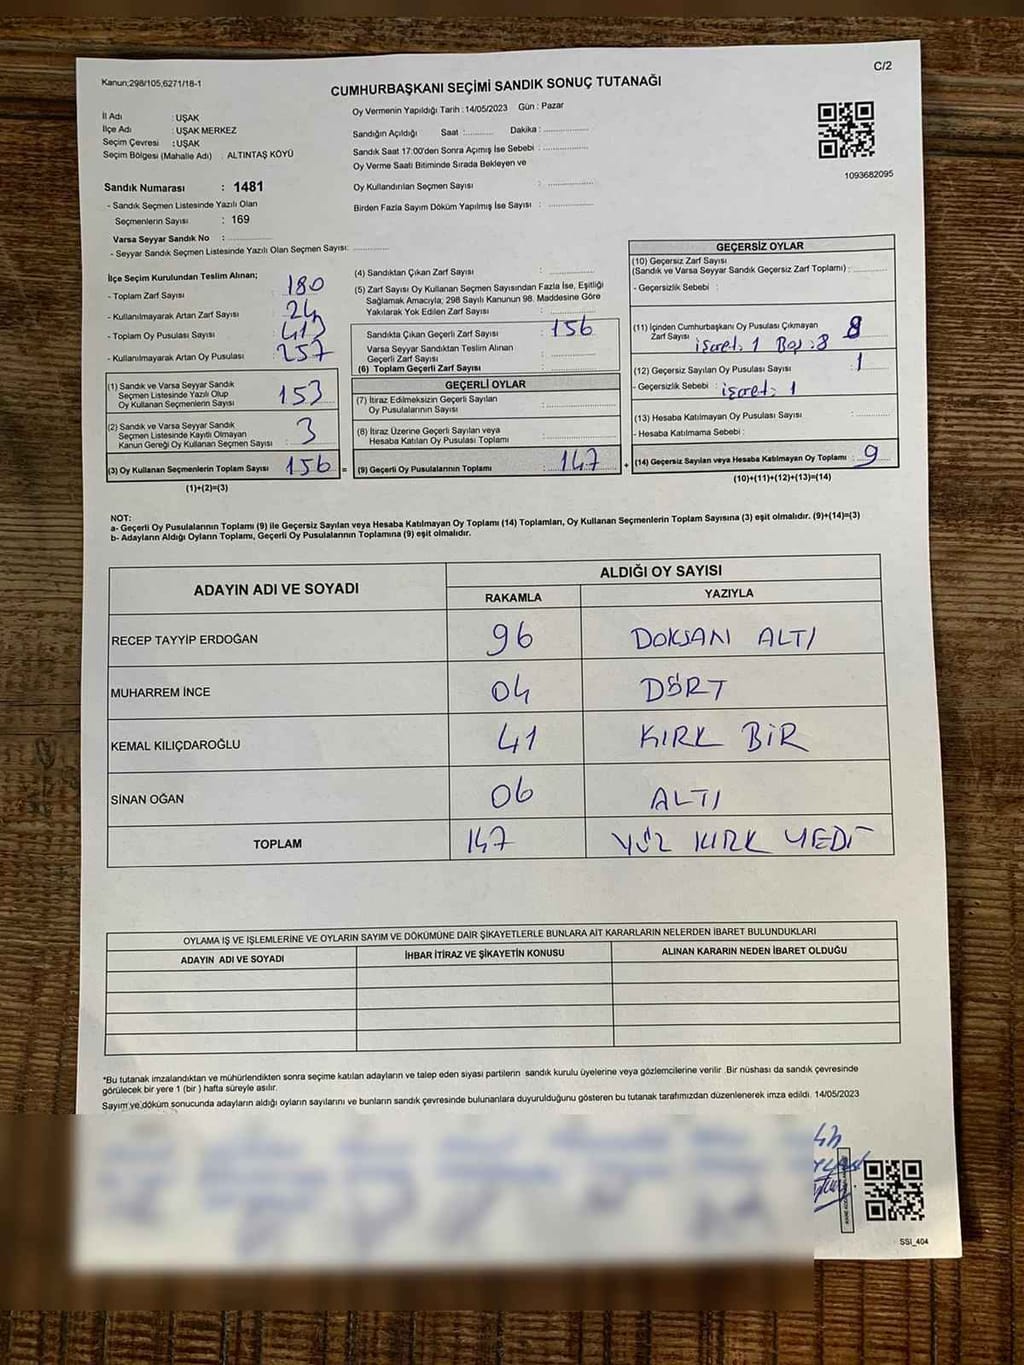 C/2
Kanun;298/105,6271/18-1
CUMHURBAŞKANI SEÇİMİ SANDIK SONUÇ TUTANAĞI
İl Adı : UŞAK
İlçe Adı : UŞAK MERKEZ
Seçim Çevresi : UŞAK
Seçim Bölgesi (Mahalle Adı) : ALTINTAŞ KÖYÜ
Sandık Numarası : 1481
- Sandık Seçmen Listesinde Yazılı Olan
Seçmenlerin Sayısı : 169
Varsa Seyyar Sandık No : ............
- Seyyar Sandık Seçmen Listesinde Yazılı Olan Seçmen Sayısı: ............
Oy Vermenin Yapıldığı Tarih : 14/05/2023 Gün : Pazar
Sandığın Açıldığı Saat :.......... Dakika : ...............
Sandık Saat 17:00'den Sonra Açımış İse Sebebi : ...............
Oy Verme Saati Bitiminde Sırada Bekleyen ve
Oy Kullandırılan Seçmen Sayısı : ...............
Birden Fazla Sayım Döküm Yapılmış İse Sayısı : ...............
1093682095
İlçe Seçim Kurulundan Teslim Alınan;
- Toplam Zarf Sayısı : 180
- Kullanılmayarak Artan Zarf Sayısı : 24
- Toplam Oy Pusulası Sayısı : 413
- Kullanılmayarak Artan Oy Pusulası : 257
(1) Sandık ve Varsa Seyyar Sandık
Seçmen Listesinde Yazılı Olup
Oy Kullanan Seçmenlerin Sayısı : 153
(2) Sandık ve Varsa Seyyar Sandık
Seçmen Listesinde Kayıtlı Olmayan
Kanun Gereği Oy Kullanan Seçmen Sayısı : 3
(3) Oy Kullanan Seçmenlerin Toplam Sayısı : 156 =
(1)+(2)=(3)
(4) Sandıktan Çıkan Zarf Sayısı : ............
(5) Zarf Sayısı Oy Kullanan Seçmen Sayısından Fazla İse, Eşitliği
Sağlamak Amacıyla; 298 Sayılı Kanunun 98. Maddesine Göre
Yakılarak Yok Edilen Zarf Sayısı : ............
Sandıkta Çıkan Geçerli Zarf Sayısı : 156
Varsa Seyyar Sandıktan Teslim Alınan
Geçerli Zarf Sayısı : ............
(6) Toplam Geçerli Zarf Sayısı : ............
GEÇERLİ OYLAR
(7) İtiraz Edilmeksizin Geçerli Sayılan
Oy Pusulalarının Sayısı : ............
(8) İtiraz Üzerine Geçerli Sayılan veya
Hesaba Katılan Oy Pusulası Toplamı : ............
(9) Geçerli Oy Pusulalarının Toplamı : 147 +
GEÇERSİZ OYLAR
(10) Geçersiz Zarf Sayısı
(Sandık ve Varsa Seyyar Sandık Geçersiz Zarf Toplamı) : ............
- Geçersizlik Sebebi :
(11) İçinden Cumhurbaşkanı Oy Pusulası Çıkmayan
Zarf Sayısı : 8
işaret: 1 Boş: 8
(12) Geçersiz Sayılan Oy Pusulası Sayısı : 1
- Geçersizlik Sebebi : işaret: 1
(13) Hesaba Katılmayan Oy Pusulası Sayısı : ............
- Hesaba Katılmama Sebebi :
(14) Geçersiz Sayılan veya Hesaba Katılmayan Oy Toplamı : 9
(10)+(11)+(12)+(13)=(14)
NOT:
a- Geçerli Oy Pusulalarının Toplamı (9) ile Geçersiz Sayılan veya Hesaba Katılmayan Oy Toplamı (14) Toplamları, Oy Kullanan Seçmenlerin Toplam Sayısına (3) eşit olmalıdır. (9)+(14)=(3)
b- Adayların Aldığı Oyların Toplamı, Geçerli Oy Pusulalarının Toplamına (9) eşit olmalıdır.
ADAYIN ADI VE SOYADI
ALDIĞI OY SAYISI
RAKAMLA YAZIYLA
RECEP TAYYİP ERDOĞAN 96 DOKSAN ALTI
MUHARREM İNCE 04 DÖRT
KEMAL KILIÇDAROĞLU 41 KIRK BİR
SİNAN OĞAN 06 ALTI
TOPLAM 147 YÜZ KIRK YEDİ
OYLAMA İŞ VE İŞLEMLERİNE VE OYLARIN SAYIM VE DÖKÜMÜNE DAİR ŞİKAYETLERLE BUNLARA AİT KARARLARIN NELERDEN İBARET BULUNDUKLARI
ADAYIN ADI VE SOYADI İHBAR İTİRAZ VE ŞİKAYETİN KONUSU ALINAN KARARIN NEDEN İBARET OLDUĞU
*Bu tutanak imzalandıktan ve mühürlendikten sonra seçime katılan adayların ve talep eden siyasi partilerin sandık kurulu üyelerine veya gözlemcilerine verilir .Bir nüshası da sandık çevresinde
görülecek bir yere 1 (bir ) hafta süreyle asılır.
Sayım ve döküm sonucunda adayların aldığı oyların sayılarını ve bunların sandık çevresinde bulunanlara duyurulduğunu gösteren bu tutanak tarafımızdan düzenlenerek imza edildi. 14/05/2023
SSI_404